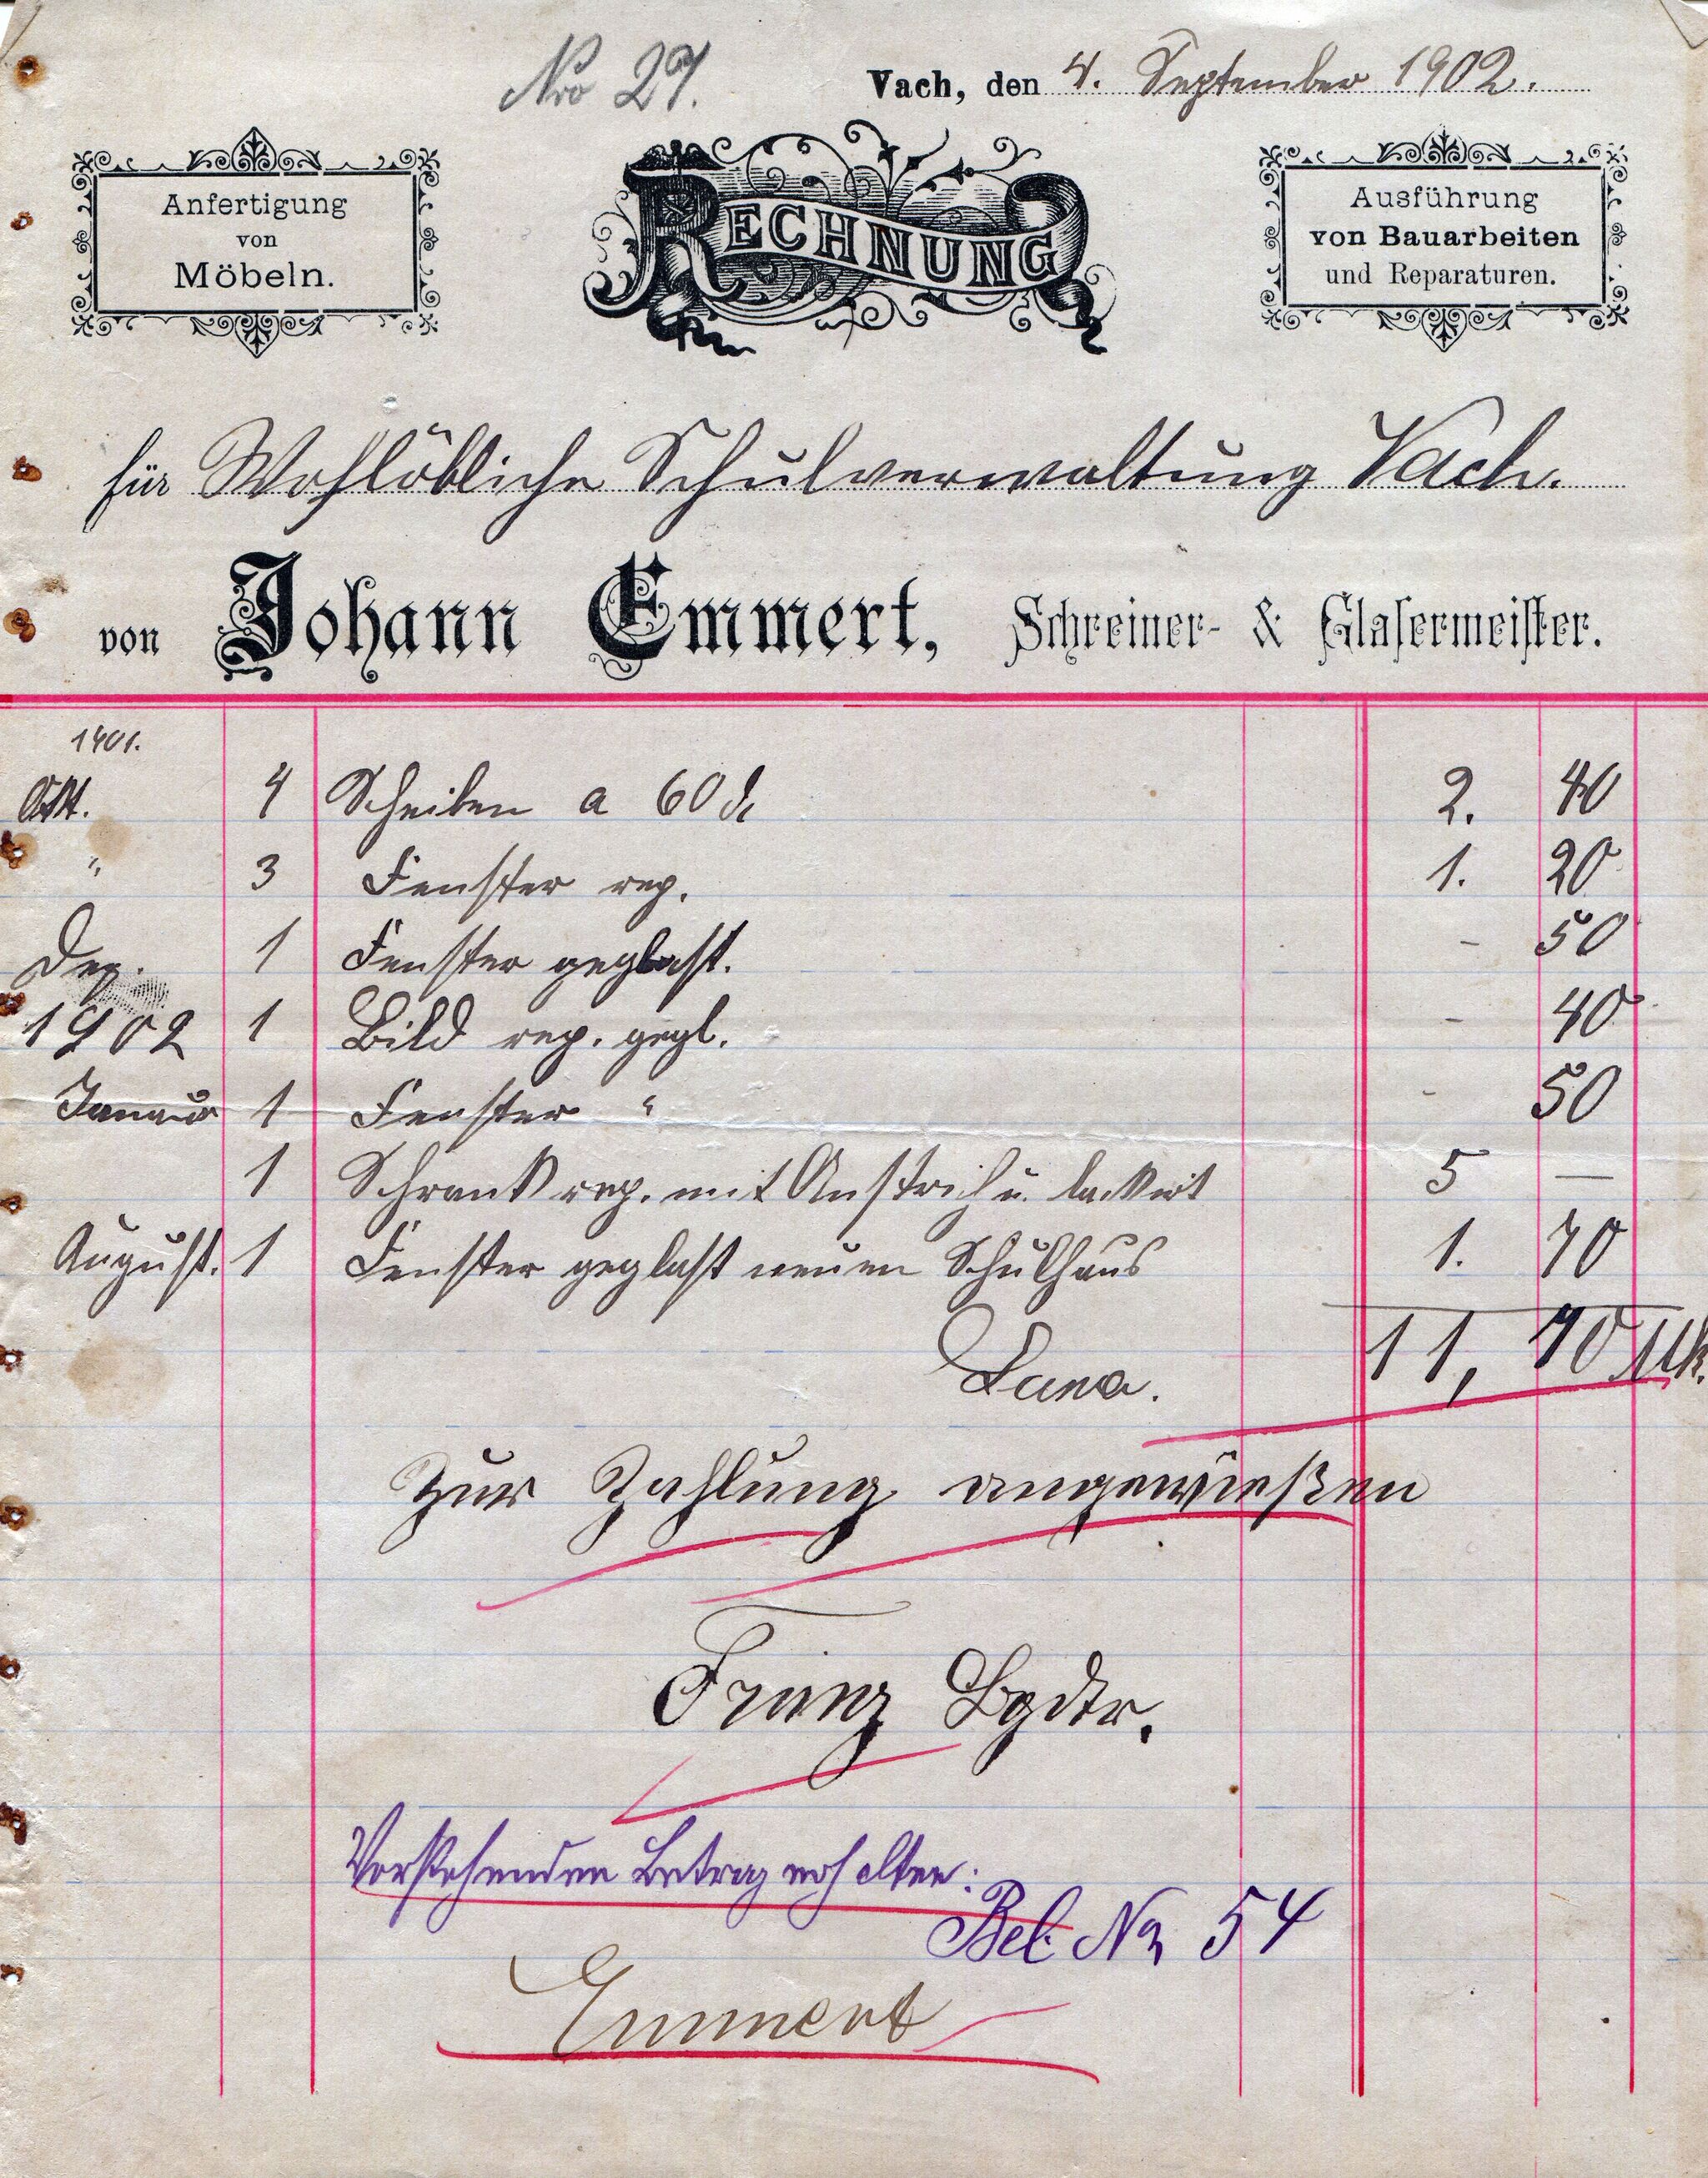 Nro 27.
Vach, den 4. September 1902.
Anfertigung
von
Möbeln.
RECHNUNG
Ausführung
von Bauarbeiten
und Reparaturen.
für Wohllöbliche Schulverwaltung Vach.
von Johann Emmert, Schreiner- & Glasermeister.
1901.
Okt. 4 Scheiben a 60 ₰ 2. 40
" 3 Fenster rep. 1. 20
Dez. 1 Fenster geglast. - 50
1902 1 Bild rep. gegl. - 40
Januar 1 Fenster " - 50
1 Schrank rep. mit Anstrich u. lackirt 5 —
August. 1 Fenster geglast neuen Schulhaus 1. 70
Suma. 11, 70 Mk.
Zur Zahlung angewießen
Franz
Vorstehenden Betrag erhalten:
Bel. No 54
Emmert